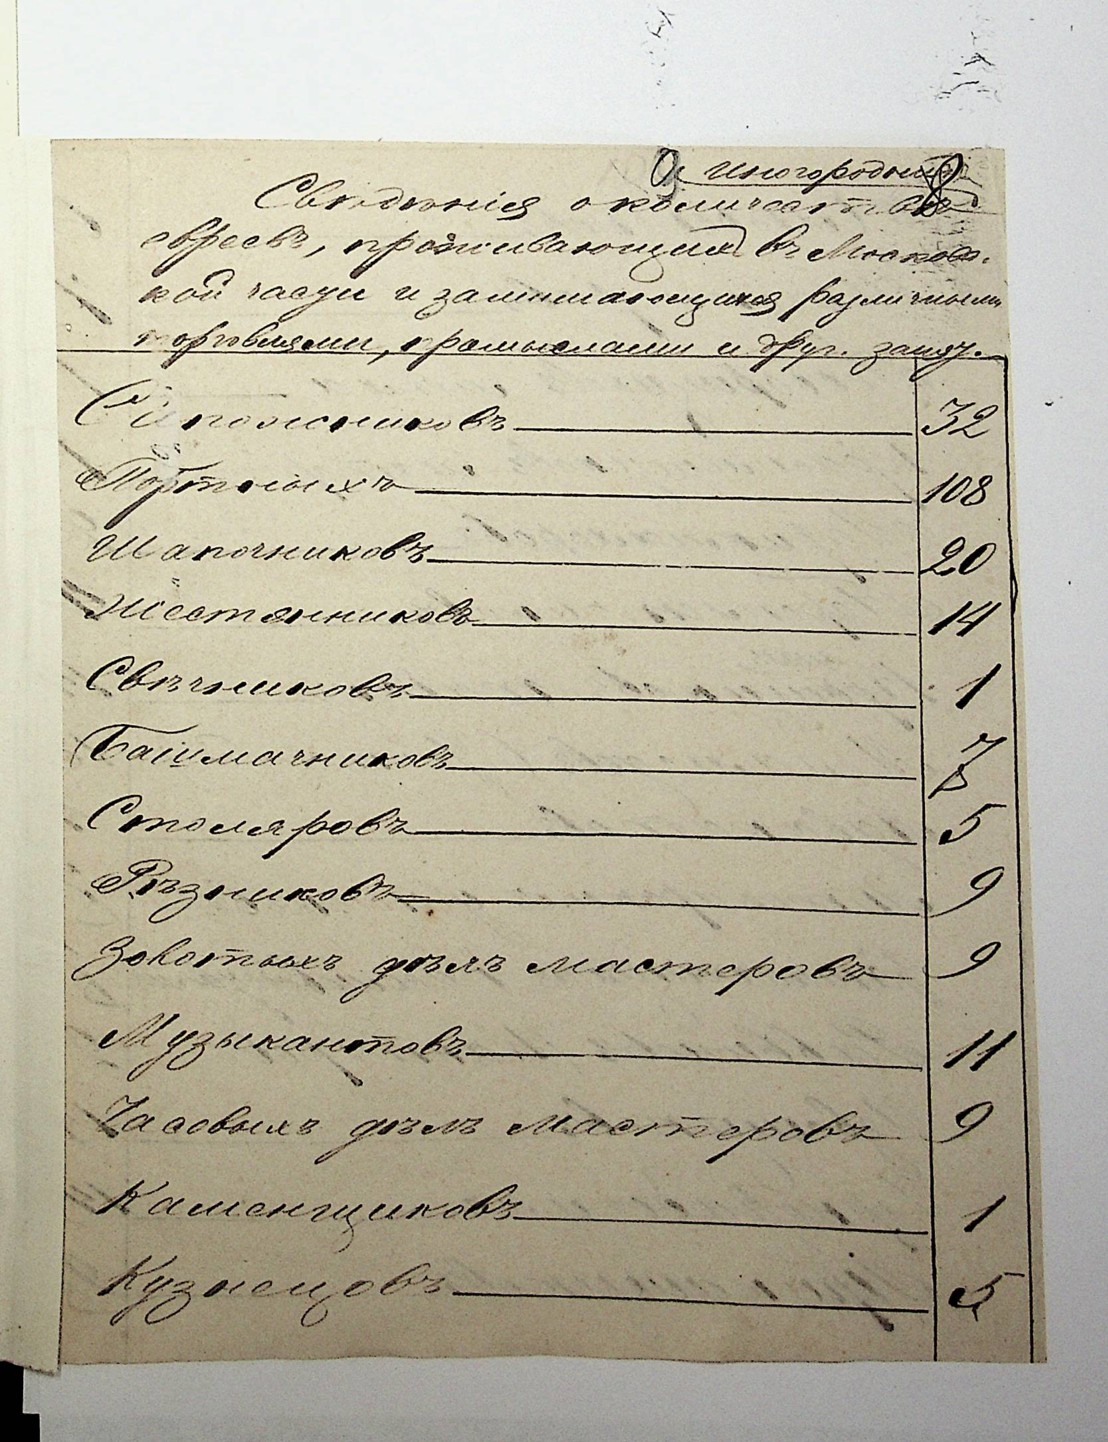 8
а иногородныхъ
Сведѣнія о количествѣ
евреевъ, проживающихъ въ Москов-
кой части и занимающихся различными
торговлями, промыслами и друг. занят.
Сапожниковъ 32
Портныхъ 108
Шапочниковъ 20
Жестянниковъ 14
Свѣчниковъ 1
Башмачниковъ 7
Столяровъ 5
Рѣзниковъ 9
Золотыхъ дѣлъ мастеровъ 9
Музыкантовъ 11
Часовыхъ дѣлъ мастеровъ 9
Каменщиковъ 1
Кузнецовъ 5